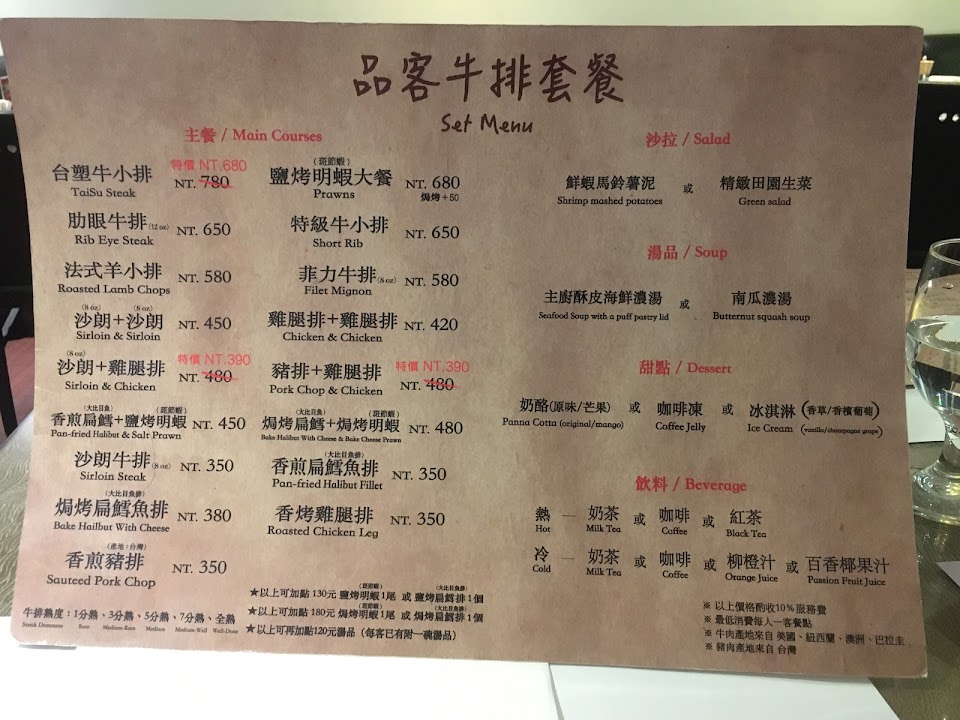 品客牛排套餐
Set Menu
主餐 / Main Courses
特價 NT.680
台塑牛小排 NT. 780
TaiSu Steak
肋眼牛排(12 oz) NT. 650
Rib Eye Steak
法式羊小排 NT. 580
Roasted Lamb Chops
(8 oz) (8 oz)
沙朗+沙朗 NT. 450
Sirloin & Sirloin
(8 oz) 特價 NT.390
沙朗+雞腿排 NT. 480
Sirloin & Chicken
(大比目魚) (斑節蝦)
香煎扁鱈+鹽烤明蝦 NT. 450
Pan-fried Halibut & Salt Prawn
沙朗牛排(8 oz) NT. 350
Sirloin Steak
(大比目魚排)
焗烤扁鱈魚排 NT. 380
Bake Hailbut With Cheese
(產地:台灣)
香煎豬排 NT. 350
Sauteed Pork Chop
(斑節蝦)
鹽烤明蝦大餐 NT. 680
Prawns 焗烤+50
特級牛小排 NT. 650
Short Rib
菲力牛排(8 oz) NT. 580
Filet Mignon
雞腿排+雞腿排 NT. 420
Chicken & Chicken
特價 NT.390
豬排+雞腿排 NT. 480
Pork Chop & Chicken
(大比目魚) (斑節蝦)
焗烤扁鱈+焗烤明蝦 NT. 480
Bake Halibut With Cheese & Bake Cheese Prawn
(大比目魚排)
香煎扁鱈魚排 NT. 350
Pan-fried Halibut Fillet
香烤雞腿排 NT. 350
Roasted Chicken Leg
牛排熟度:1分熟、3分熟、5分熟、7分熟、全熟
Steak Doneness Rare Medium-Rare Medium Medium-Well Well-Done
(斑節蝦) (大比目魚排)
★以上可加點 130元 鹽烤明蝦1尾 或 鹽烤扁鱈排1個
(斑節蝦) (大比目魚排)
★以上可加點 180元 焗烤明蝦1尾 或 焗烤扁鱈排1個
★以上可再加點120元湯品(每客已有附一碗湯品)
沙拉 / Salad
鮮蝦馬鈴薯泥 或 精緻田園生菜
Shrimp mashed potatoes Green salad
湯品 / Soup
主廚酥皮海鮮濃湯 或 南瓜濃湯
Seafood Soup with a puff pastry lid Butternut squash soup
甜點 / Dessert
奶酪(原味/芒果) 或 咖啡凍 或 冰淇淋(香草/香檳葡萄)
Panna Cotta (original/mango) Coffee Jelly Ice Cream (vanilla/champagne grape)
飲料 / Beverage
熱 — 奶茶 或 咖啡 或 紅茶
Hot Milk Tea Coffee Black Tea
冷 — 奶茶 或 咖啡 或 柳橙汁 或 百香椰果汁
Cold Milk Tea Coffee Orange Juice Passion Fruit Juice
※ 以上價格酌收10%服務費
※ 最低消費每人一客餐點
※ 牛肉產地來自 美國、紐西蘭、澳洲、巴拉圭
※ 豬肉產地來自 台灣